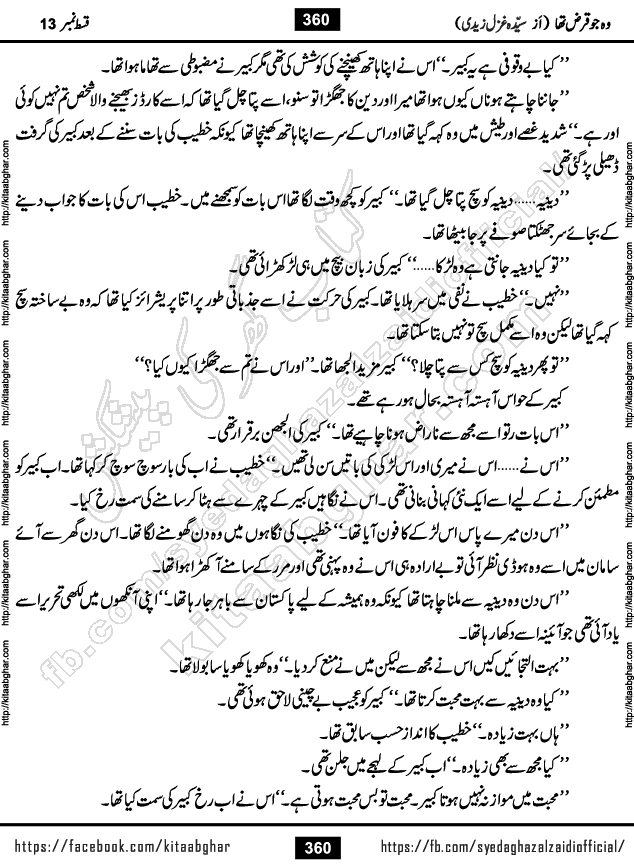 وہ جو قرض تھا (از سیّدہ غزل زیدی)
360
قسط نمبر 13
’’کیا بے وقوفی ہے یہ کبیر۔‘‘ اس نے اپنا ہاتھ کھینچنے کی کوشش کی تھی مگر کبیر نے مضبوطی سے تھاما ہوا تھا۔
’’جاننا چاہتے ہوناں کیوں ہوا تھا میرا اور دین کا جھگڑا تو سنو، اسے پتا چل گیا تھا کہ اسے کارڈز بھیجنے والا شخص تم نہیں کوئی
اور ہے۔‘‘ شدید غصے اور طیش میں وہ کہہ گیا تھا اور اس کے سر سے اپنا ہاتھ کھینچا تھا کیونکہ خطیب کی بات سننے کے بعد کبیر کی گرفت
ڈھیلی پڑ گئی تھی۔
’’دینیہ......دینیہ کو سچ پتا چل گیا تھا۔‘‘ کبیر کو کچھ وقت لگا تھا اس بات کو سمجھنے میں۔ خطیب اس کی بات کا جواب دینے
کے بجائے سر جھٹکتا صوفے پر جا بیٹھا تھا۔
’’تو کیا دینیہ جانتی ہے وہ لڑکا......‘‘ کبیر کی زبان بیچ میں ہی لڑکھڑائی تھی۔
’’نہیں۔‘‘ خطیب نے نفی میں سر ہلایا تھا۔ کبیر کی حرکت نے اسے جذباتی طور پر اتنا پریشرائز کیا تھا کہ وہ بے ساختہ سچ
کہہ گیا تھا لیکن وہ اسے مکمل سچ تو نہیں بتا سکتا تھا۔
’’تو پھر دینیہ کو سچ کس سے پتا چلا؟‘‘ کبیر مزید الجھا تھا۔ ’’اور اس نے تم سے جھگڑا کیوں کیا؟‘‘
کبیر کے حواس آہستہ آہستہ بحال ہو رہے تھے۔
’’اس بات پر تو اسے مجھ سے ناراض ہونا چاہیے تھا۔‘‘ کبیر کی الجھن برقرار تھی۔
’’اس نے......اس نے میری اور اس لڑکی کی باتیں سن لی تھیں۔‘‘ خطیب نے اب کی بار سوچ سوچ کر کہا تھا۔ اب کبیر کو
مطمئن کرنے کے لیے اسے ایک نئی کہانی بنانی تھی۔ اس نے نگاہیں کبیر کے چہرے سے ہٹا کر سامنے کی سمت رخ کیا۔
’’اس دن میرے پاس اس لڑکے کا فون آیا تھا۔‘‘ خطیب کی نگاہوں میں وہ دن گھومنے لگا تھا۔ اس دن گھر سے آئے
سامان میں اسے وہ ہوڈی نظر آئی تو بے ارادہ ہی اس نے وہ پہنی تھی اور مرر کے سامنے آ کھڑا ہوا تھا۔
’’اس دن وہ دینیہ سے ملنا چاہتا تھا کیونکہ وہ ہمیشہ کے لیے پاکستان سے باہر جا رہا تھا۔‘‘ اپنی آنکھوں میں لکھی تحریر اسے
یاد آئی تھی جو آئینہ اسے دکھا رہا تھا۔
’’بہت التجائیں کیں اس نے مجھ سے لیکن میں نے منع کر دیا۔‘‘ وہ کھویا کھویا سا بولا تھا۔
’’کیا وہ دینیہ سے بہت محبت کرتا تھا۔‘‘ کبیر کو عجیب بے چینی لاحق ہوئی تھی۔
’’ہاں بہت زیادہ۔‘‘ خطیب کا انداز حسب سابق تھا۔
’’کیا مجھ سے بھی زیادہ۔‘‘ اب کبیر کے لہجے میں جلن تھی۔
’’محبت میں موازنہ نہیں ہوتا کبیر۔ محبت تو بس محبت ہوتی ہے۔‘‘ اس نے اب رخ کبیر کی سمت کیا تھا۔
http://kitaabghar.com http://kitaabghar.com http://kitaabghar.com http://kitaabghar.com http://kitaabghar.com http://kitaabghar.com
http://kitaabghar.com http://kitaabghar.com http://kitaabghar.com http://kitaabghar.com http://kitaabghar.com http://kitaabghar.com
کتاب گھر کی پیشکش
kitaabghar.com
fb.com/syedaghazalzaidiofficial/
https://facebook.com/kitaabghar
360
https://fb.com/syedaghazalzaidiofficial/